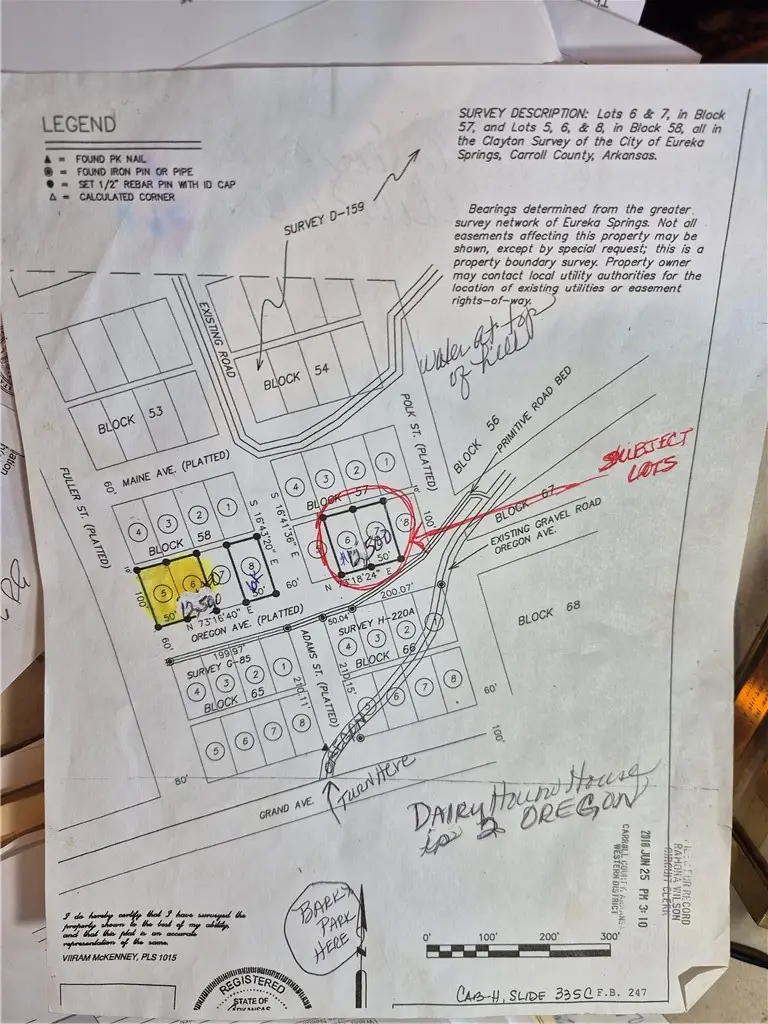 LEGEND
▲ = FOUND PK NAIL
= FOUND IRON PIN OR PIPE
● = SET 1/2" REBAR PIN WITH ID CAP
△ = CALCULATED CORNER
SURVEY DESCRIPTION: Lots 6 & 7, in Block
57, and Lots 5, 6, & 8, in Block 58, all in
the Clayton Survey of the City of Eureka
Springs, Carroll County, Arkansas.
Bearings determined from the greater
survey network of Eureka Springs. Not all
easements affecting this property may be
shown, except by special request; this is a
property boundary survey. Property owner
may contact local utility authorities for the
location of existing utilities or easement
rights-of-way.
SURVEY D-159
EXISTING ROAD
BLOCK 54
BLOCK 53
water at top
of hill
POLK ST. (PLATTED)
BLOCK 56
PRIMITIVE ROAD BED
MAINE AVE. (PLATTED)
60'
FULLER ST. (PLATTED)
4 3 2 1
BLOCK 57
SUBJECT
LOTS
BLOCK 67
EXISTING GRAVEL ROAD
OREGON AVE.
4 3 2 1
BLOCK 58
S 16°43'20" E
S 16°41'36" E
100'
5 6 7 8
5 6 7 8
12,500
12,500
100'
50'
50'
50'
60'
N 73°16'40" E
N 73°18'24" E
OREGON AVE. (PLATTED)
60'
200.07'
50.04'
199.97'
SURVEY H-220A
SURVEY G-85
4 3 2 1
BLOCK 66
BLOCK 68
4 3 2 1
BLOCK 65
ADAMS ST. (PLATTED)
210.11'
210.15'
5 6 7 8
5 6 7 8
60'
100'
80'
OREGON
GRAND AVE.
TURN HERE
DAIRY Hound House
is 2 OREGON
RAMONA WILSON
CIRCUIT CLERK
2018 JUN 25 PM 3:10
CARROLL COUNTY, ARKANSAS
WESTERN DISTRICT
I do hereby certify that I have surveyed the
property shown to the best of my ability,
and that this plat is an accurate
representation of the same.
VIIRAM McKENNEY, PLS 1015
BARK
PARK
HERE
0' 100' 200' 300'
REGISTERED
STATE OF
ARKANSAS
CAB-H, SLIDE 335C F.B. 247